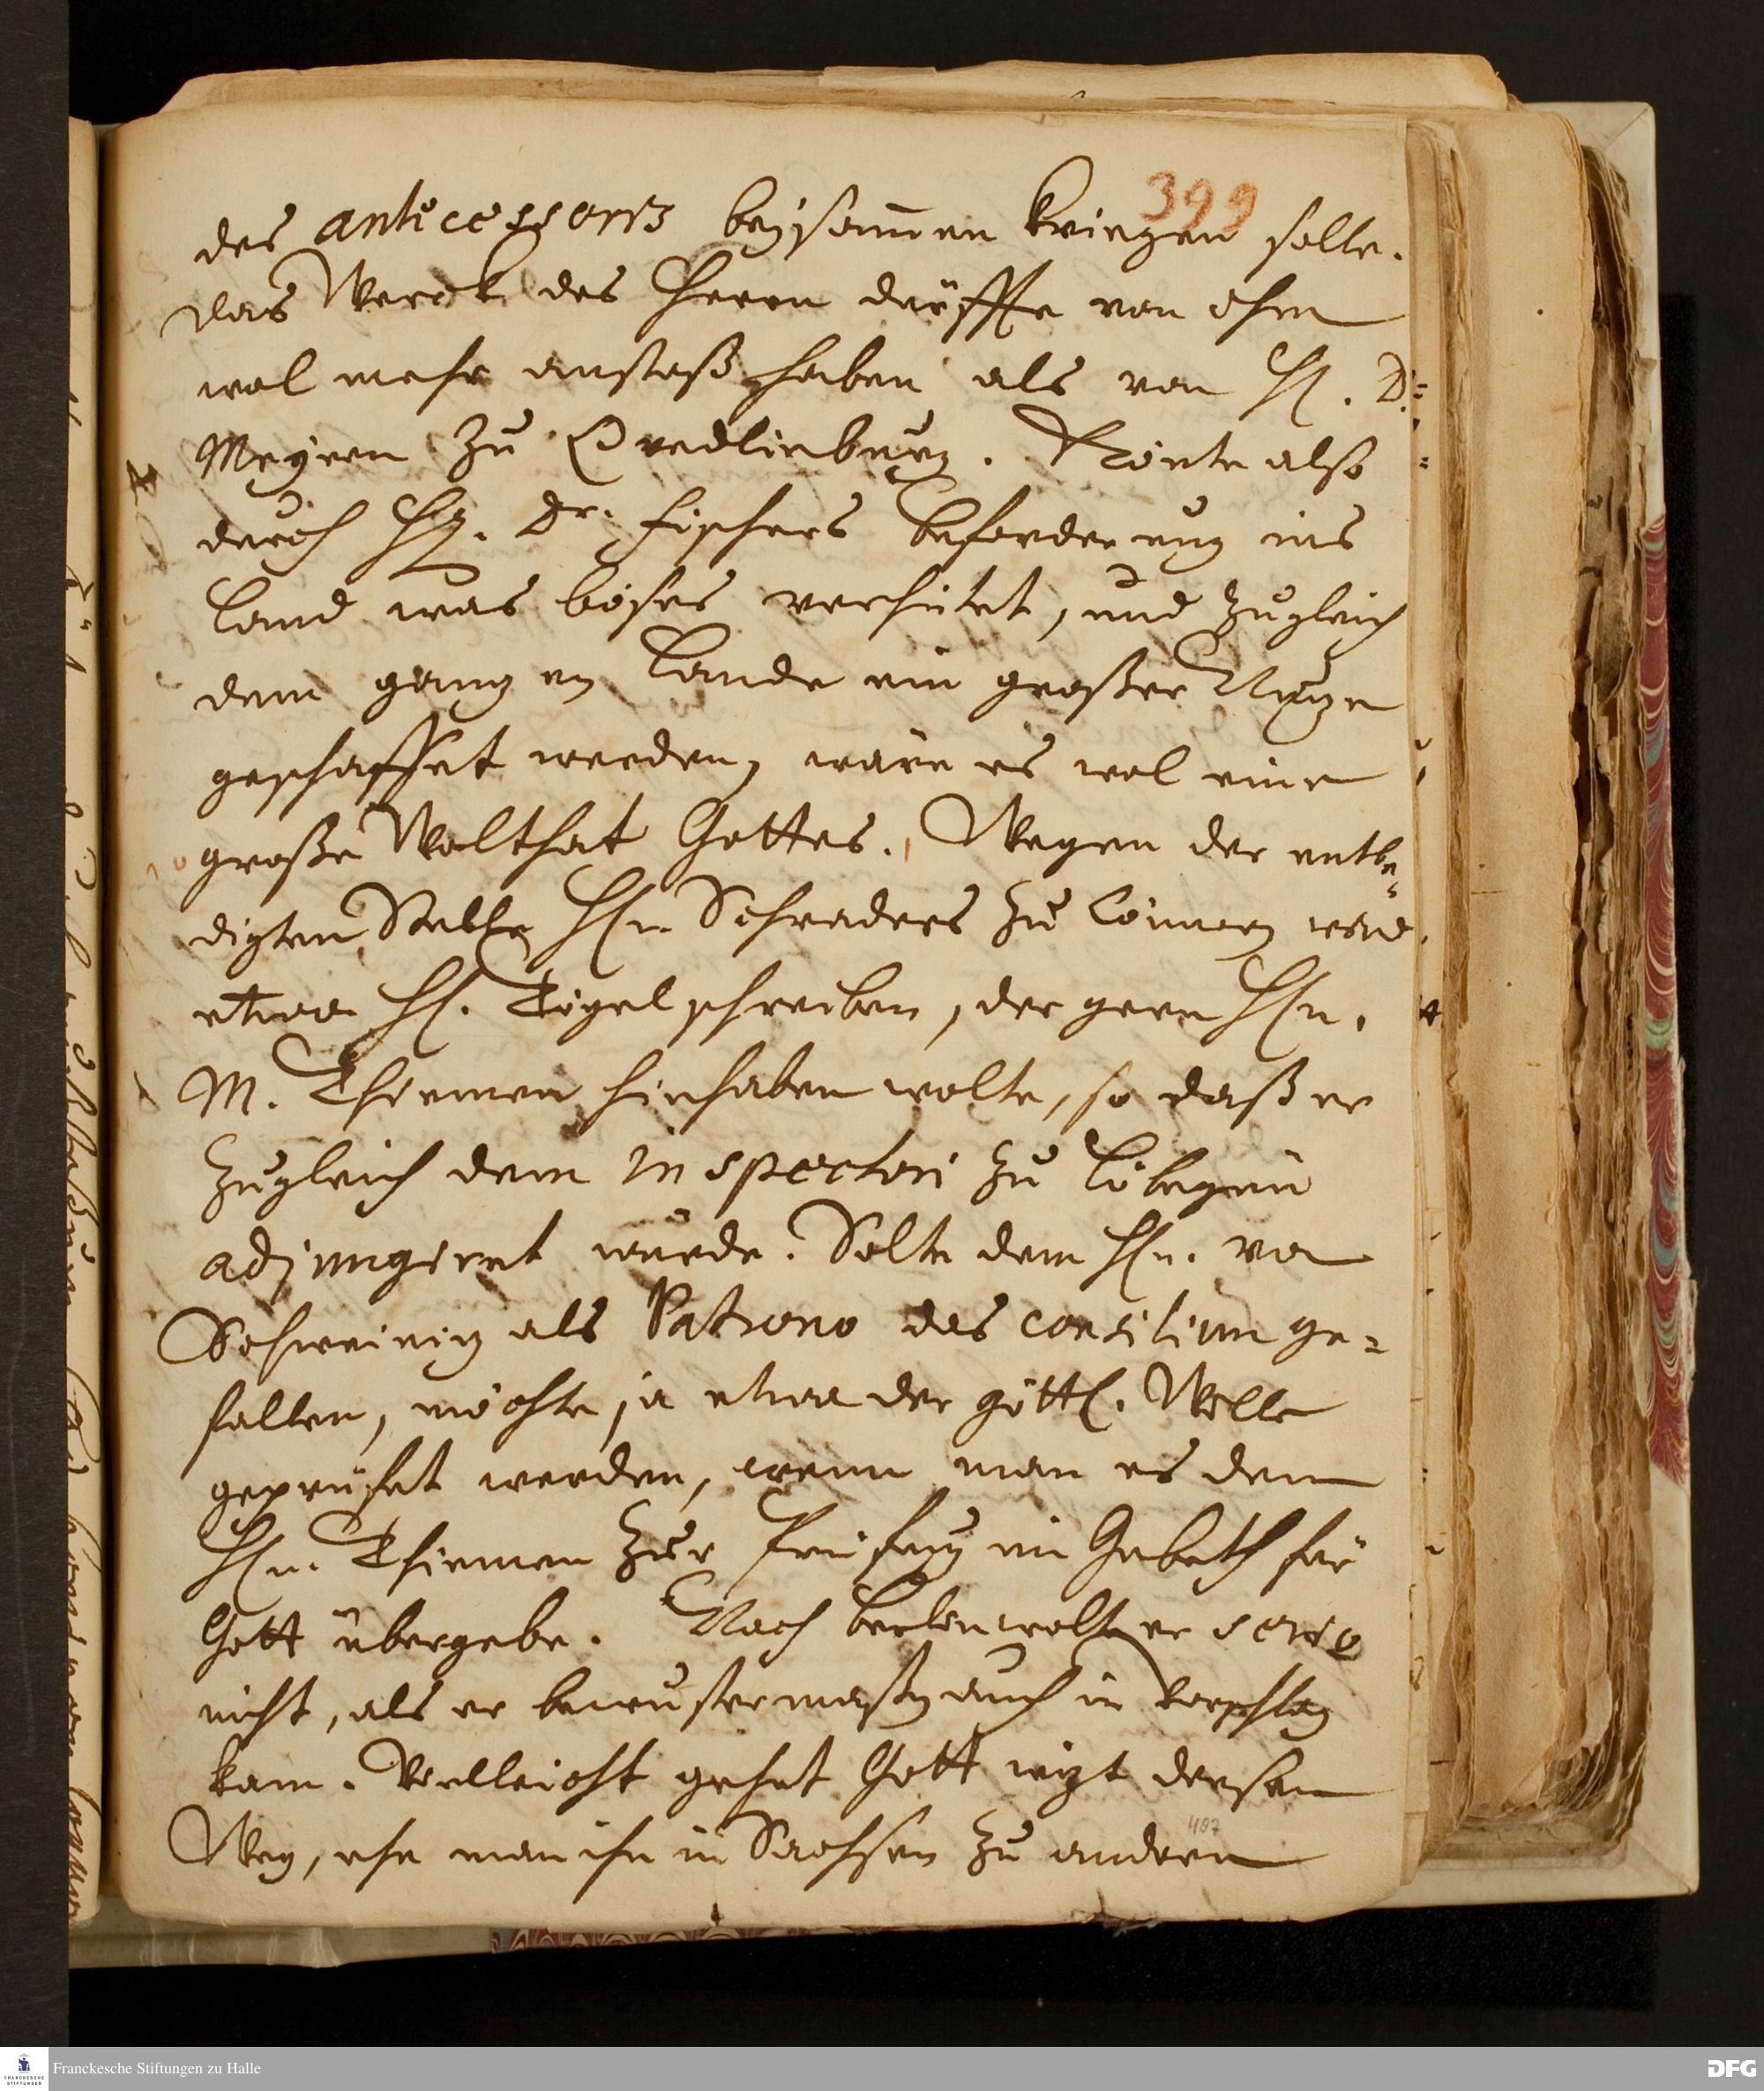 399
des antecessoris beysammen kriegen solte.
das Werck des Herrn dürffte von ihm
wol mehr anstoß haben als von H. D.
Meyern zu Qvedlinburg. Könte also
durch H. Dr. Fischers beforderung ins
Land was böses verhütet, und zugleich
dem gantzen Lande ein großer Nutze
geschaffet werden, wäre es wol eine
große Wolthat Gottes. Wegen der entle-
digten Stelle Hn. Schraders zu Cönnern wird
etwa H. Tögel schreiben, der gern Hn.
M. Thiemen hinhaben wolte, so daß er
zugleich dem Inspectori zu Löbegün
adjungiret würde. Solte dem Hn. von
Schweinitz als Patrono das consilium ge-
fallen, möchte ja etwa der göttl. Wille
geprüfet werden, wenn man es dem
Hn. Thiemen zur Prüfung im Gebeth für
Gott übergebe. Nach Berlin wolte er
nicht, als er bewustermaßen auch in Vorschlag
kam. Vielleicht gehet Gott itzt diesen
Weg, ehe man ihn in Sachsen zu andern
407
Franckesche Stiftungen zu Halle
FRANCKESCHE
STIFTUNGEN
DFG